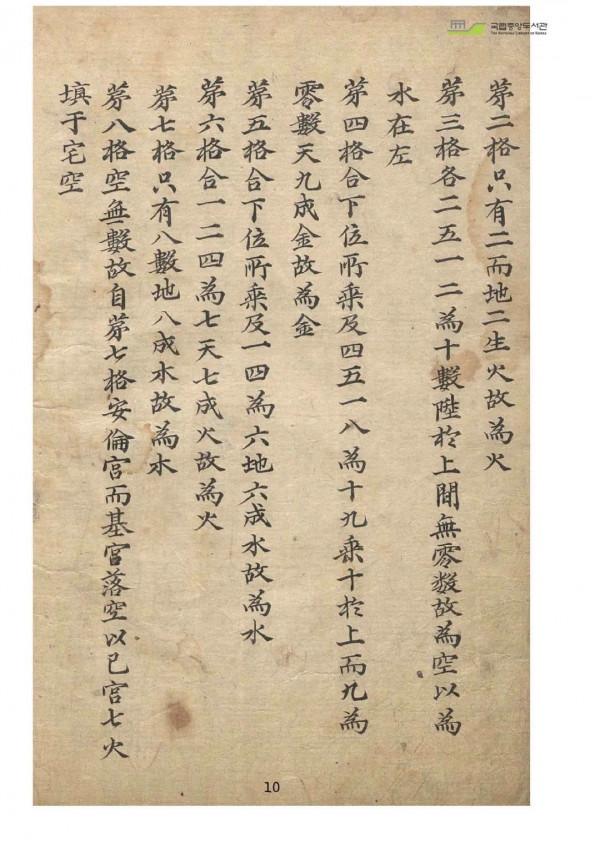 국립중앙도서관
The National Library of Korea
茅二格只有二而地二生火故為火
茅三格各二五一二為十數陞於上間無零數故為空以為
水在左
茅四格合下位所乘及四五一八為十九乘十於上而九為
零數天九成金故為金
茅五格合下位所乘及一四為六地六成水故為水
茅六格合一二四為七天七成火故為火
茅七格只有八數地八成木故為木
茅八格空無數故自茅七格安倫宮而基宮落空以已宮七火
填于宅空
10